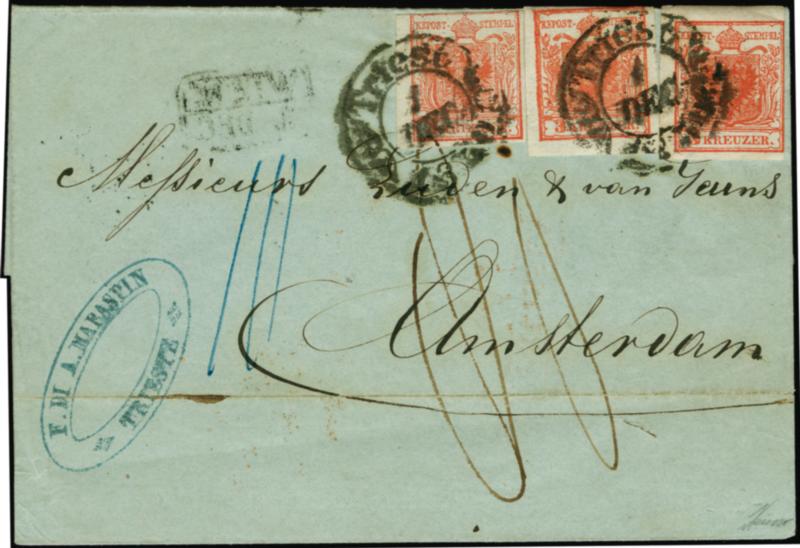 KKPOST-STEMPEL KKPOST-STEMPEL KKPOST-STEMPEL
KREUZER.
Triest
1
DEC
Triest
1
DEC
WIEN
Messieurs Luden & van Geuns
Amsterdam
F. DI A. MARASPIN
TRIESTE